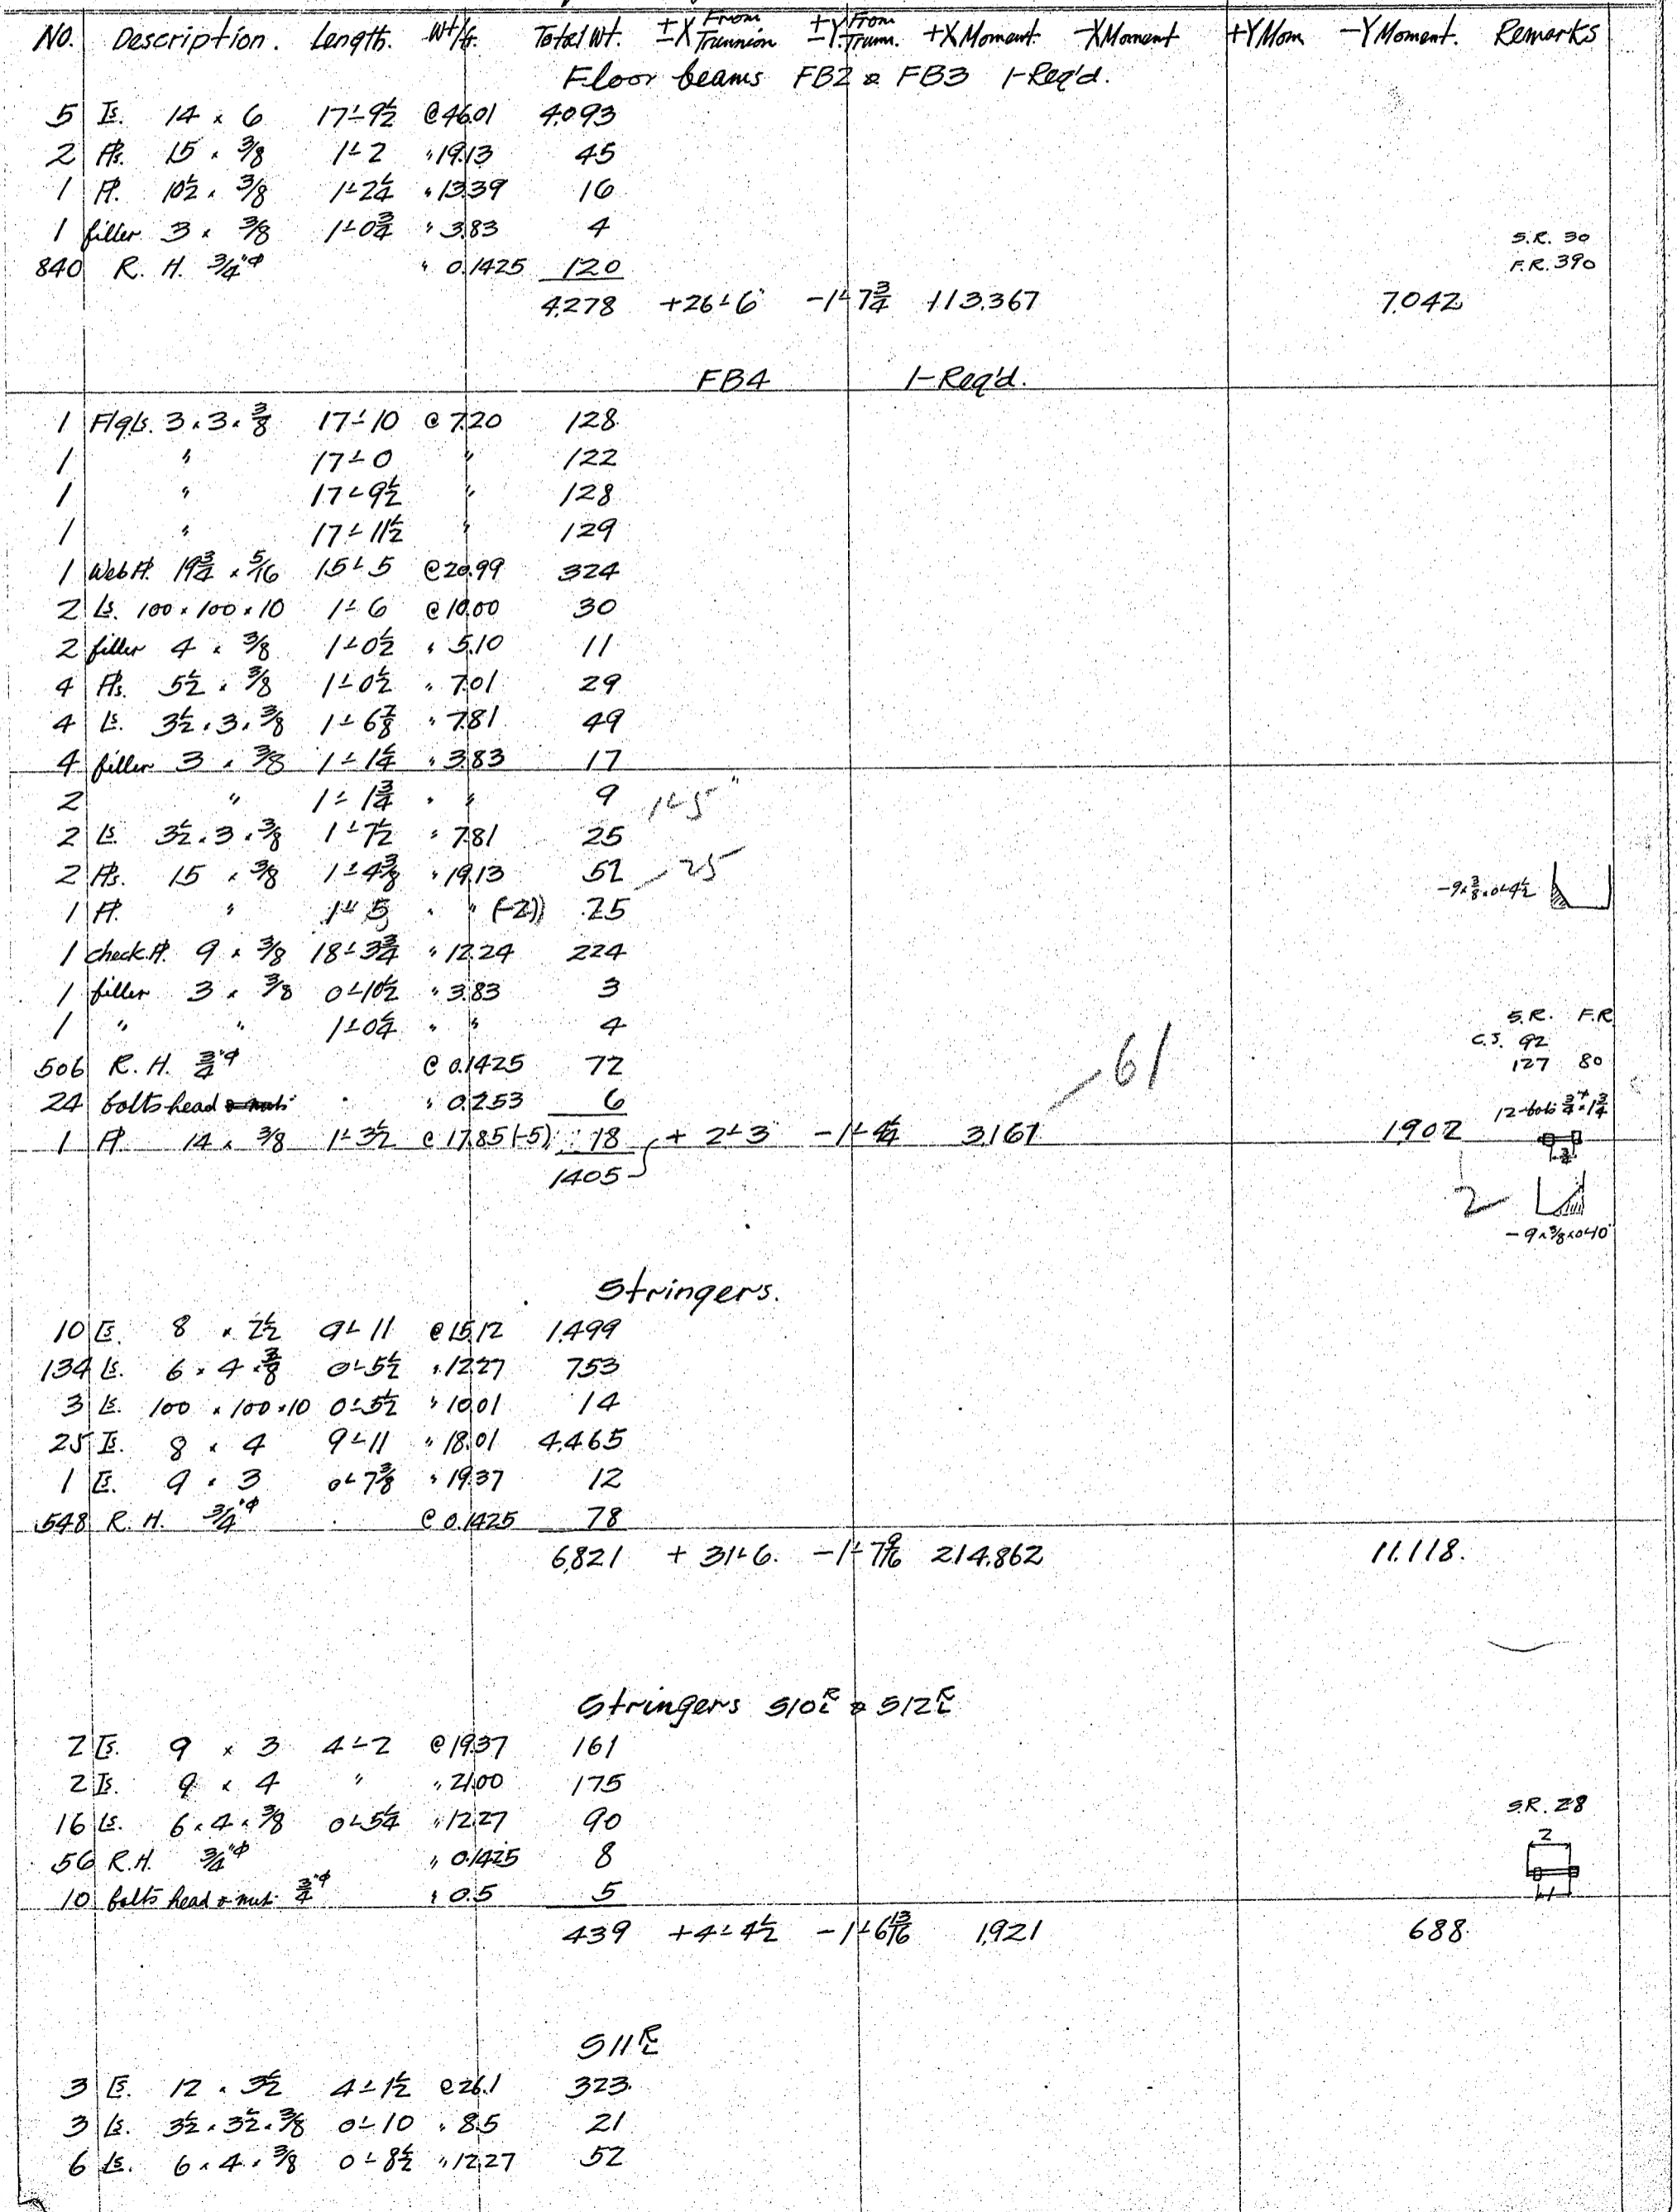 No. Description. Length. Wt/ft. Total Wt. ±X From Trunnion ±Y From Trunn. +X Moment. -X Moment +Y Mom -Y Moment. Remarks
Floor beams FB2 & FB3 1-Req'd.
5 Is. 14 x 6 17'-9½ @46.01 4,093
2 Pls. 15 x 3/8 1'-2 " 19.13 45
1 Pl. 10½ x 3/8 1'-2¼ " 13.39 16
1 filler 3 x 3/8 1'-0¾ " 3.83 4
S.R. 30
840 R. H. 3/4"φ " 0.1425 120 F.R. 390
4,278 +26'-6" -1'-7¾ 113,367 7,042
FB4 1-Req'd.
1 Flg Ls. 3 x 3 x 3/8 17'-10 @ 7.20 128
1 " 17'-0 " 122
1 " 17'-9½ " 128
1 " 17'-11½ " 129
1 Web Pl. 19¾ x 5/16 15'-5 @20.99 324
2 Ls. 100 x 100 x 10 1'-6 @10.00 30
2 filler 4 x 3/8 1'-0½ " 5.10 11
4 Pls. 5½ x 3/8 1'-0½ " 7.01 29
4 Ls. 3½ x 3 x 3/8 1'-6⅞ " 7.81 49
4 filler 3 x 3/8 1'-1¼ " 3.83 17
2 " 1'-1¾ " " 9 1'-5"
2 Ls. 3½ x 3 x 3/8 1'-7½ " 7.81 25
2 Pls. 15 x 3/8 1'-4⅜ " 19.13 52 -25 -9 x 3/8 x 0'-4½
1 Pl. " 1'-5 " " (-2) 25
1 check Pl. 9 x 3/8 18'-3¾ " 12.24 224
1 filler 3 x 3/8 0'-10½ " 3.83 3
1 " " 1'-0¼ " " 4 S.R. F.R
C.S. 92
506 R. H. 3/4"φ @ 0.1425 72 -61 127 80
24 bolts head " 0.253 6 12-bolts 3/4"φ x 1¾
1 Pl. 14 x 3/8 1'-3½ @ 17.85 (-5) 18 + 2'-3 -1'-4¼ 3,161 1,902
1405 2
-9 x 3/8 x 0'-10"
Stringers.
10 [s. 8 x 2½ 9'-11 @15.12 1,499
134 Ls. 6 x 4 x 3/8 0'-5½ " 12.27 753
3 Ls. 100 x 100 x 10 0'-5½ " 10.01 14
25 Is. 8 x 4 9'-11 " 18.01 4,465
1 [s. 9 x 3 0'-7⅜ " 19.37 12
548 R. H. 3/4"φ @ 0.1425 78
6,821 + 31'-6. -1'-7 9/16 214,862 11,118.
Stringers S10 R/L & S12 R/L
2 [s. 9 x 3 4'-2 @19.37 161
2 Is. 9 x 4 " " 21.00 175
16 Ls. 6 x 4 x 3/8 0'-5¼ " 12.27 90 S.R. 28
56 R.H. 3/4"φ " 0.1425 8 2
10 bolts head & nut 3/4"φ " 0.5 5
439 +4'-4½ -1'-6 13/16 1,921 688.
S11 R/L
3 [s. 12 x 3½ 4'-1½ @26.1 323.
3 Ls. 3½ x 3½ x 3/8 0'-10 " 8.5 21
6 Ls. 6 x 4 x 3/8 0'-8½ " 12.27 52